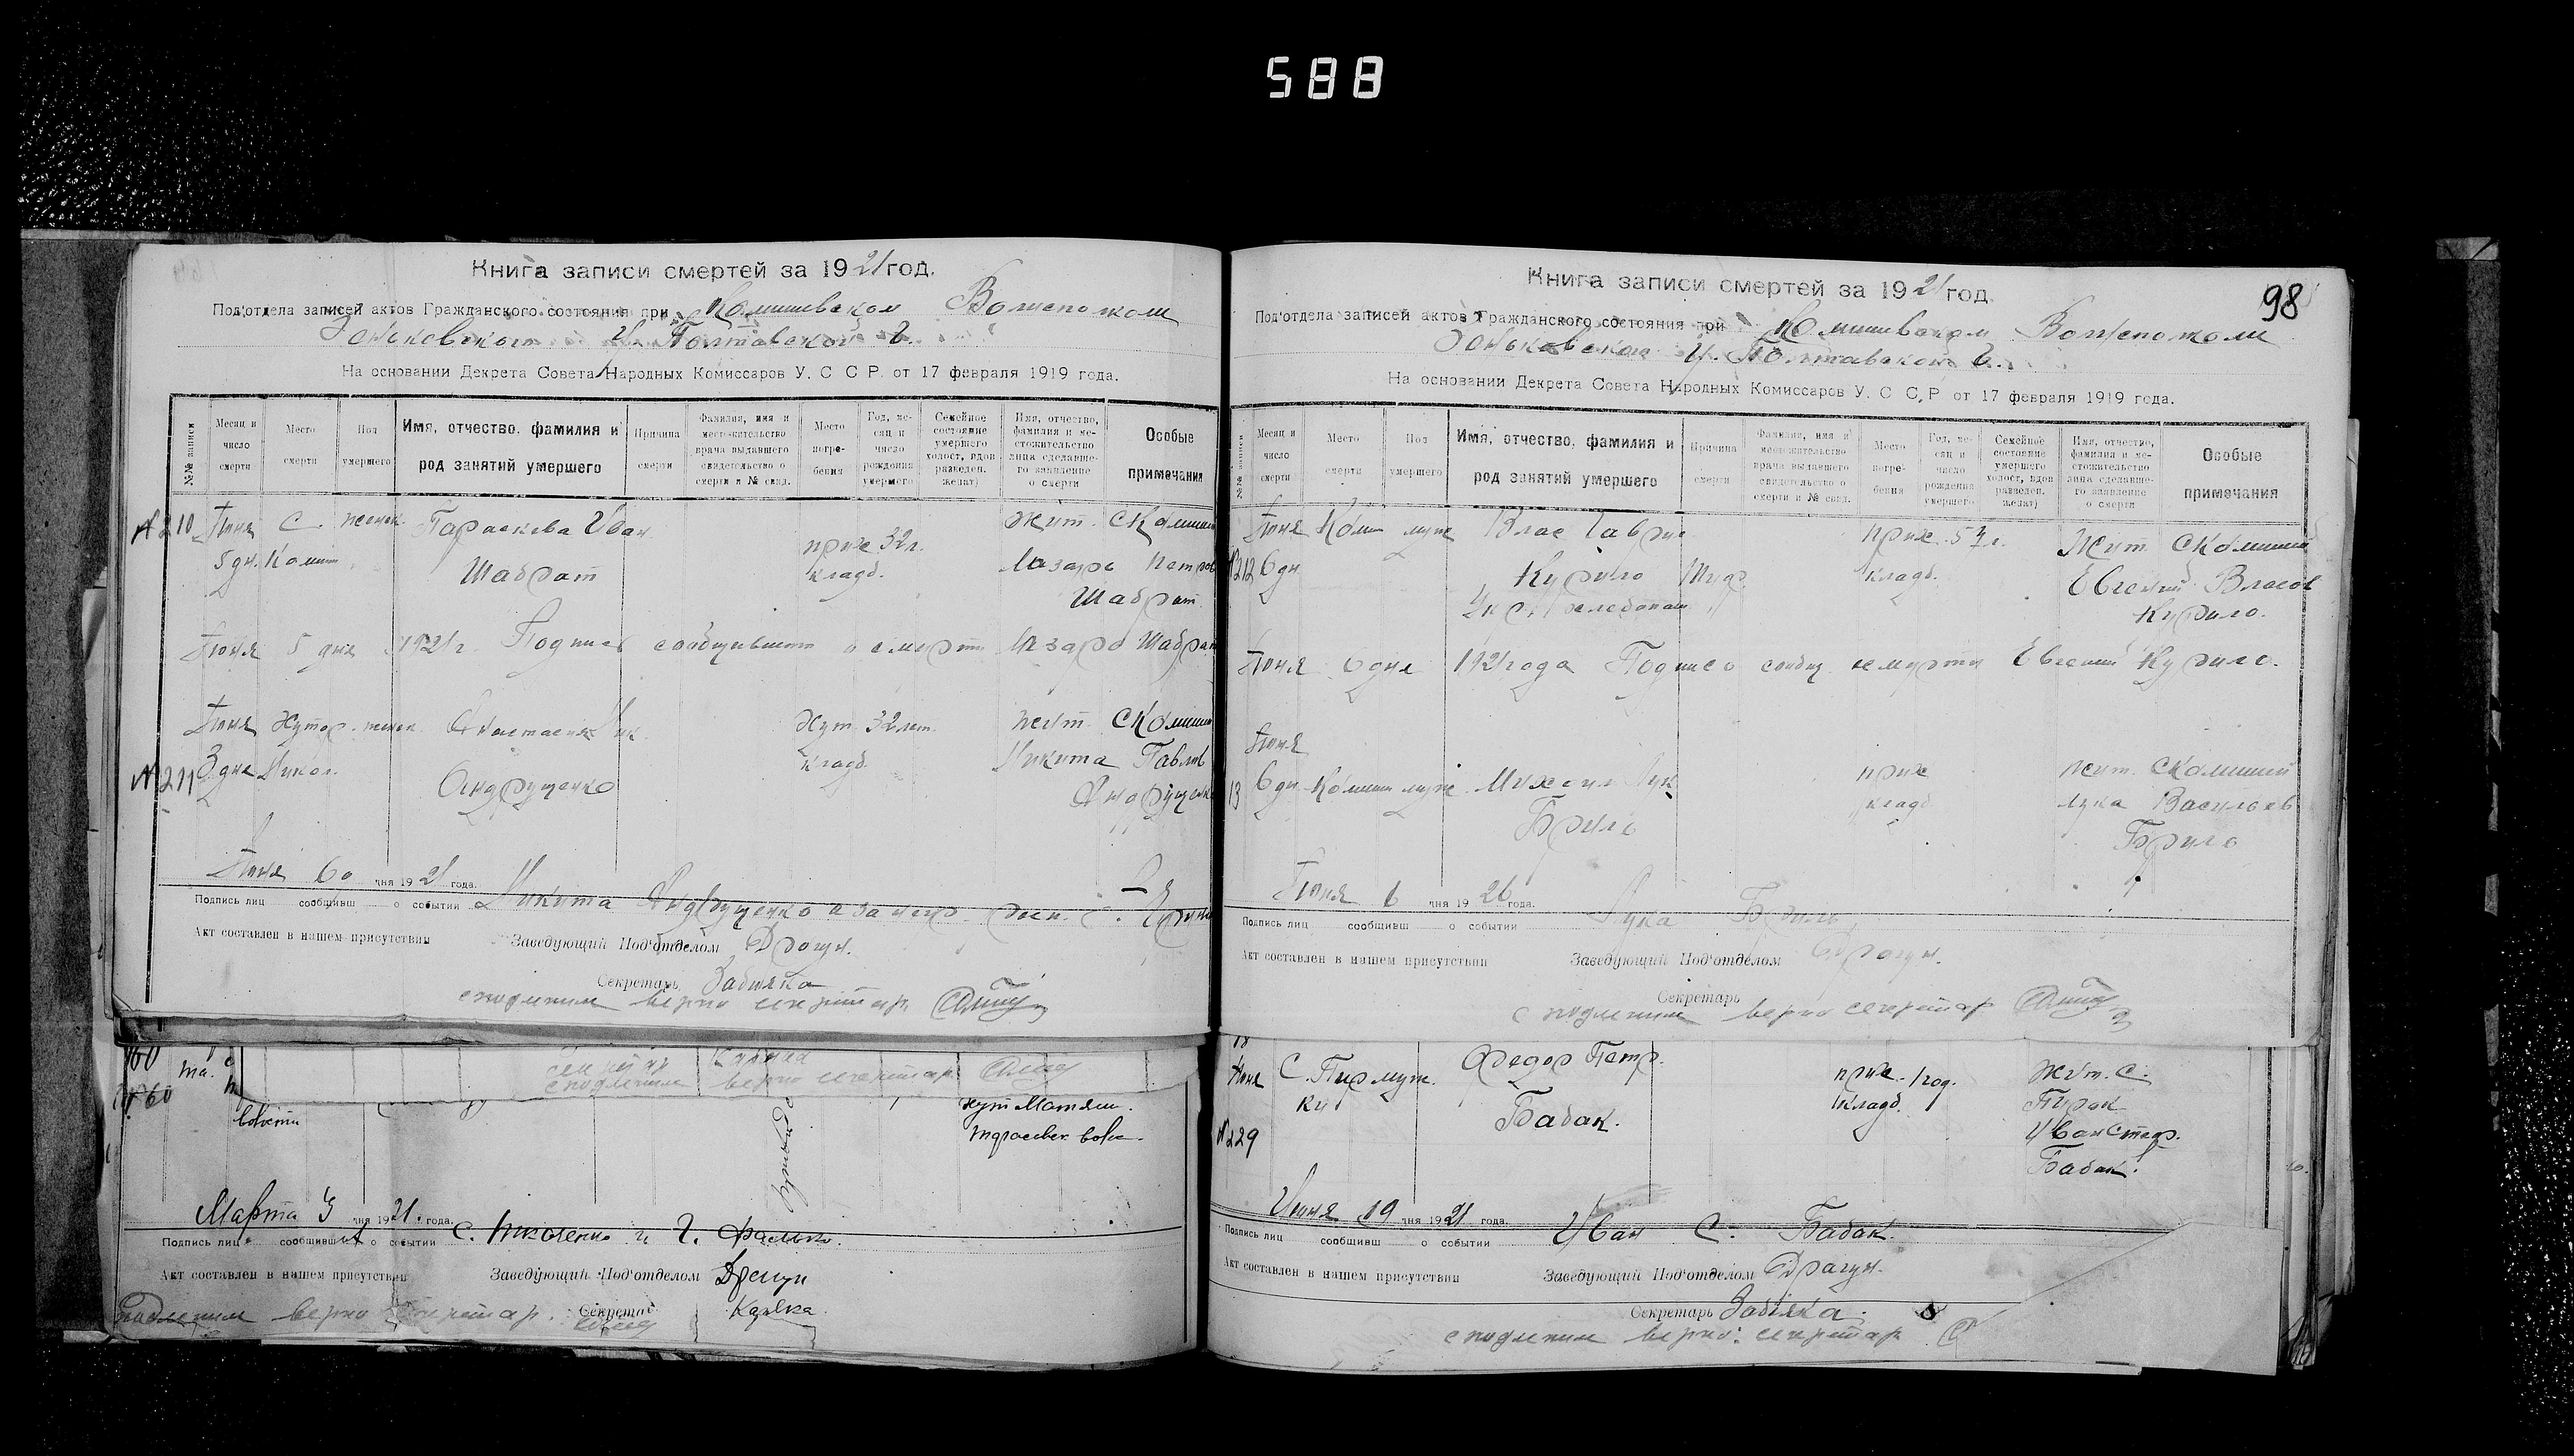 588
Книга записи смертей за 1921 год.
Под'отдела записей актов Гражданского состояния при Комишевском
Зеньковского У. Полтавской г.
На основании Декрета Совета Народных Комиссаров У. С С Р. от 17 февраля 1919 года.
№№ записи
Месяц и число смерти
Место смерти
Пол умершего
Имя, отчество, фамилия и род занятий умершего
Причина смерти
Фамилия, имя и местожительство врача выдавшего свидетельство о смерти и № свид.
Место погребения
Год, месяц и число рождения умершего
Семейное состояние умершего холост, вдов разведен. женат)
Имя, отчество, фамилия и местожительство лица сделавшего заявление о смерти
Особые примечания
№210 Июня С. женск. Параскева Иван прих 32л. жит. с Комиши
5 дн. Комиш Шабрат кладб. Лазарь Петров
Шабрат
Июня 5 дня 1921 г. Подпись сообщившего о смерти Лазарь Шабрат
Июня Хутор женск Анастасия Ник. Хут. 32 лет. жит. с Комиши
№211 3 дня Никол. Андрущенко кладб. Никита Павлов
Андрущенко
Июня 6о дня 1921 года.
Подпись лиц сообщивш о событии Никита Андрущенко
Акт составлен в нашем присутствии Заведующий Под'отделом Драгун.
Секретарь Забияка
с подлиным верно секретар
98
Книга записи смертей за 1921 год
Под'отдела записей актов Гражданского состояния при Комишевском
Зеньковском У. Полтавской г.
На основании Декрета Совета Народных Комиссаров У. С С. Р от 17 февраля 1919 года.
№№ записи
Месяц и число смерти
Место смерти
Пол умершего
Имя, отчество, фамилия и род занятий умершего
Причина смерти
Фамилия, имя и местожительство врача выдавшего свидетельство о смерти и № свид.
Место погребения
Год, месяц и число рождения умершего
Семейное состояние умершего холост, вдов разведен. женат)
Имя, отчество, фамилия и местожительство лица сделавшего заявление о смерти
Особые примечания
Июня Комиш муж Влас Гавр прих. 57 г. Жит с Комиши
№212 6 дн Курило кладб. Евгений Власов
Курило.
Июня 6 дня 1921 года Подпись сообщ. о смерти Евгений Курило.
Июня
13 6 дн Комиш муж. Михаил Лук прих жит. с Комиши
Бриль кладб Лука Васильев
Бриль
Июня 6 дня 1926 года.
Подпись лиц сообщивш о событии Лука Бриль
Акт составлен в нашем присутствии Заведующий Под'отделом Драгун.
Секретарь
с подлиным верно секретар
60
№60
секретар
с подлиным верно секретар
волости
хут Матяш.
Марта 3 дня 1921. года.
Подпись лиц сообщивш о событии С. Николенко и Г. Фалько.
Акт составлен в нашем присутствии Заведующий Под'отделом Драгун
Секретарь
подлиным верно секретар.
Июня С. Пир муж. Федор Петр. прих. 1 год. Жит. С.
ки Бабак. кладб. Пирок
№229 Иван Стер.
Бабак.
Июня 19 дня 1921 года.
Подпись лиц сообщивш о событии Иван С. Бабак.
Акт составлен в нашем присутствии Заведующий Под'отделом Драгун.
Секретарь Забіяка.
с подлиным верно: секретар